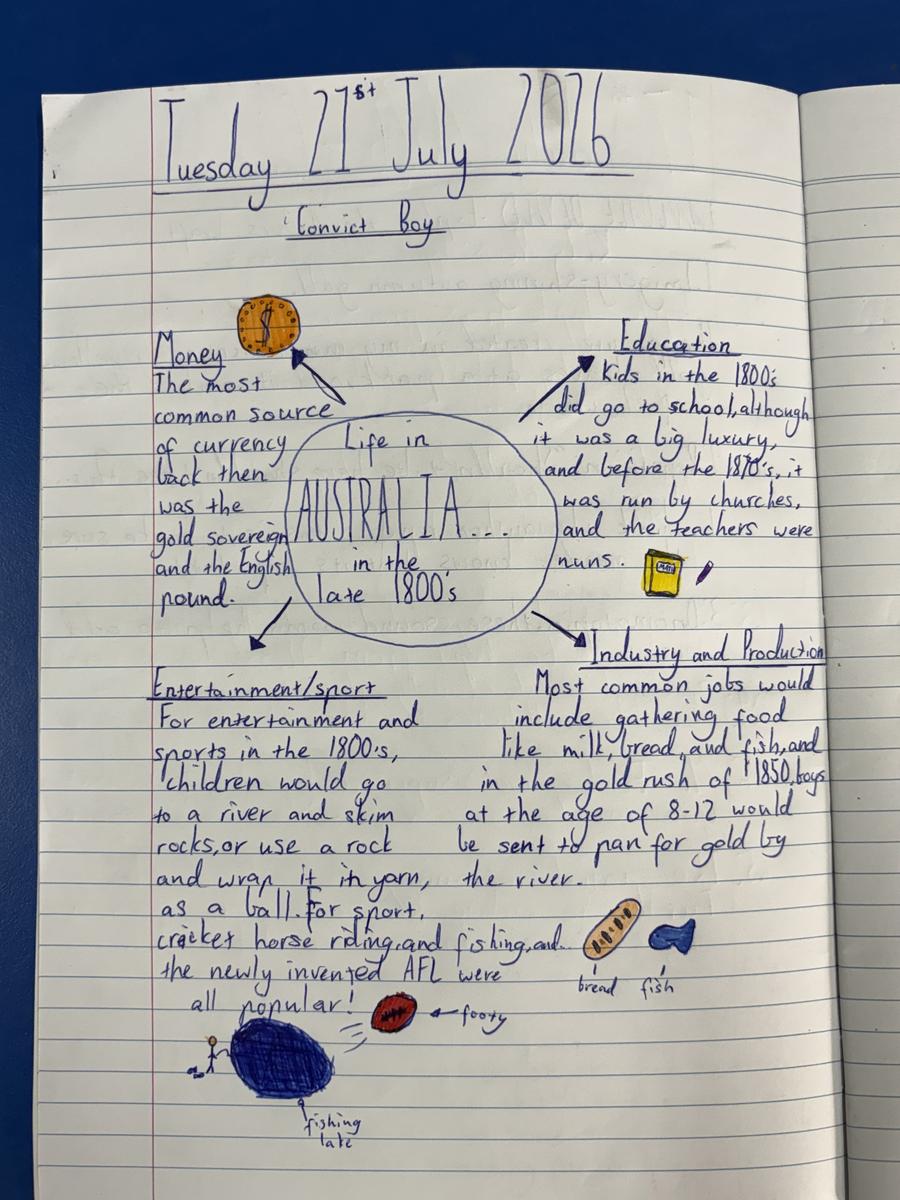 Tuesday 21st July 2026
Convict Boy
Money
The most
common source
of currency
back then
was the
gold sovereign
and the English
pound.
$
Education
Kids in the 1800's
did go to school, although
it was a big luxury,
and before the 1870's, it
was run by churches,
and the teachers were
nuns.
MATH
Life in
AUSTRALIA...
in the
late 1800's
Entertainment/sport
For entertainment and
sports in the 1800's,
children would go
to a river and skim
rocks, or use a rock
and wrap it in yarn,
as a ball. For sport,
cricket horse riding, and fishing, and
the newly invented AFL were
all popular!
footy
fishing
lake
Industry and Production
Most common jobs would
include gathering food
like milk, bread, and fish, and
in the gold rush of 1850, boys
at the age of 8-12 would
be sent to pan for gold by
the river.
bread
fish